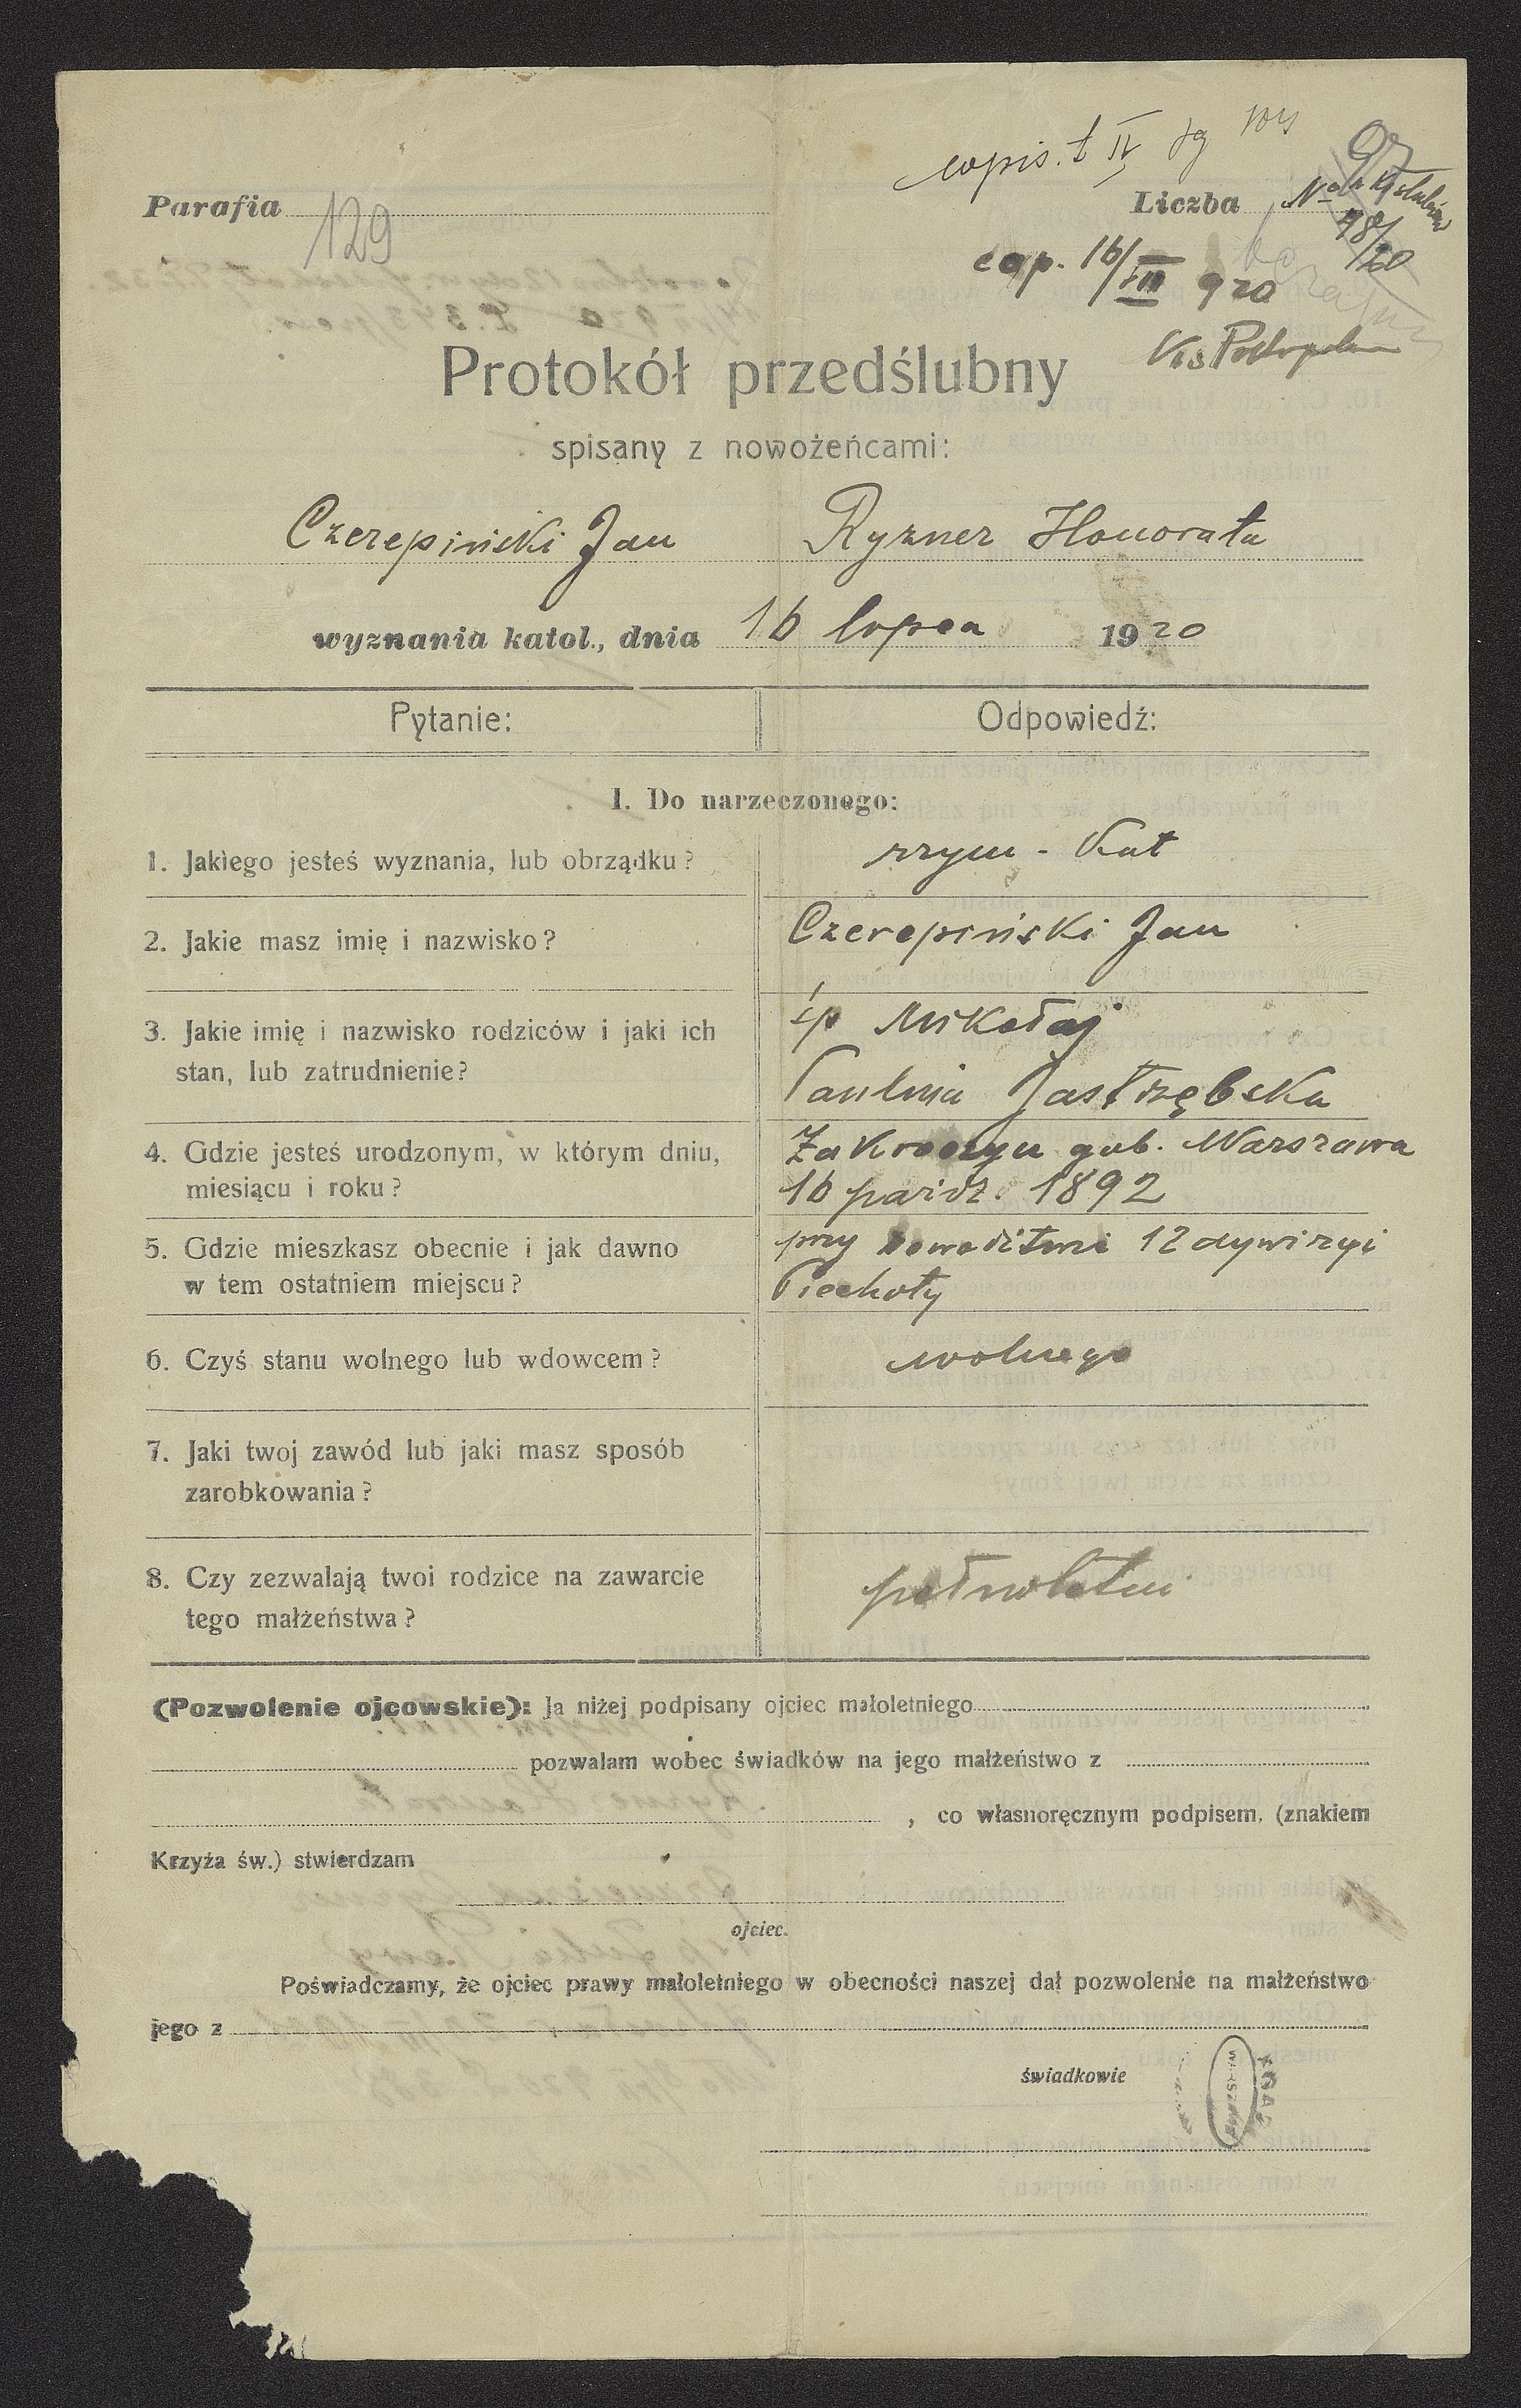 wpis. t IV
Parafia 129
Liczba
98/20
cop. 16/VII 920
Protokół przedślubny
spisany z nowożeńcami:
Czerepiński Jan Ryzner Honorata
wyznania katol., dnia 16 lipca 1920
Pytanie: Odpowiedź:
I. Do narzeczonego:
1. Jakiego jesteś wyznania, lub obrządku? rzym - Kat
2. Jakie masz imię i nazwisko? Czerepiński Jan
3. Jakie imię i nazwisko rodziców i jaki ich śp Mikołaj
stan, lub zatrudnienie? Paulina Jastrzębska
4. Gdzie jesteś urodzonym, w którym dniu, Zakroczyn gub. Warszawa
miesiącu i roku? 16 paźdz. 1892
5. Gdzie mieszkasz obecnie i jak dawno przy Dowództwie 12 dywizyi
w tem ostatniem miejscu? Piechoty
6. Czyś stanu wolnego lub wdowcem? wolnego
7. Jaki twoj zawód lub jaki masz sposób
zarobkowania?
8. Czy zezwalają twoi rodzice na zawarcie
tego małżeństwa? pełnoletni
(Pozwolenie ojcowskie): Ja niżej podpisany ojciec małoletniego
pozwalam wobec świadków na jego małżeństwo z
, co własnoręcznym podpisem. (znakiem
Krzyża św.) stwierdzam
ojciec.
Poświadczamy, że ojciec prawy małoletniego w obecności naszej dał pozwolenie na małżeństwo
jego z
świadkowie